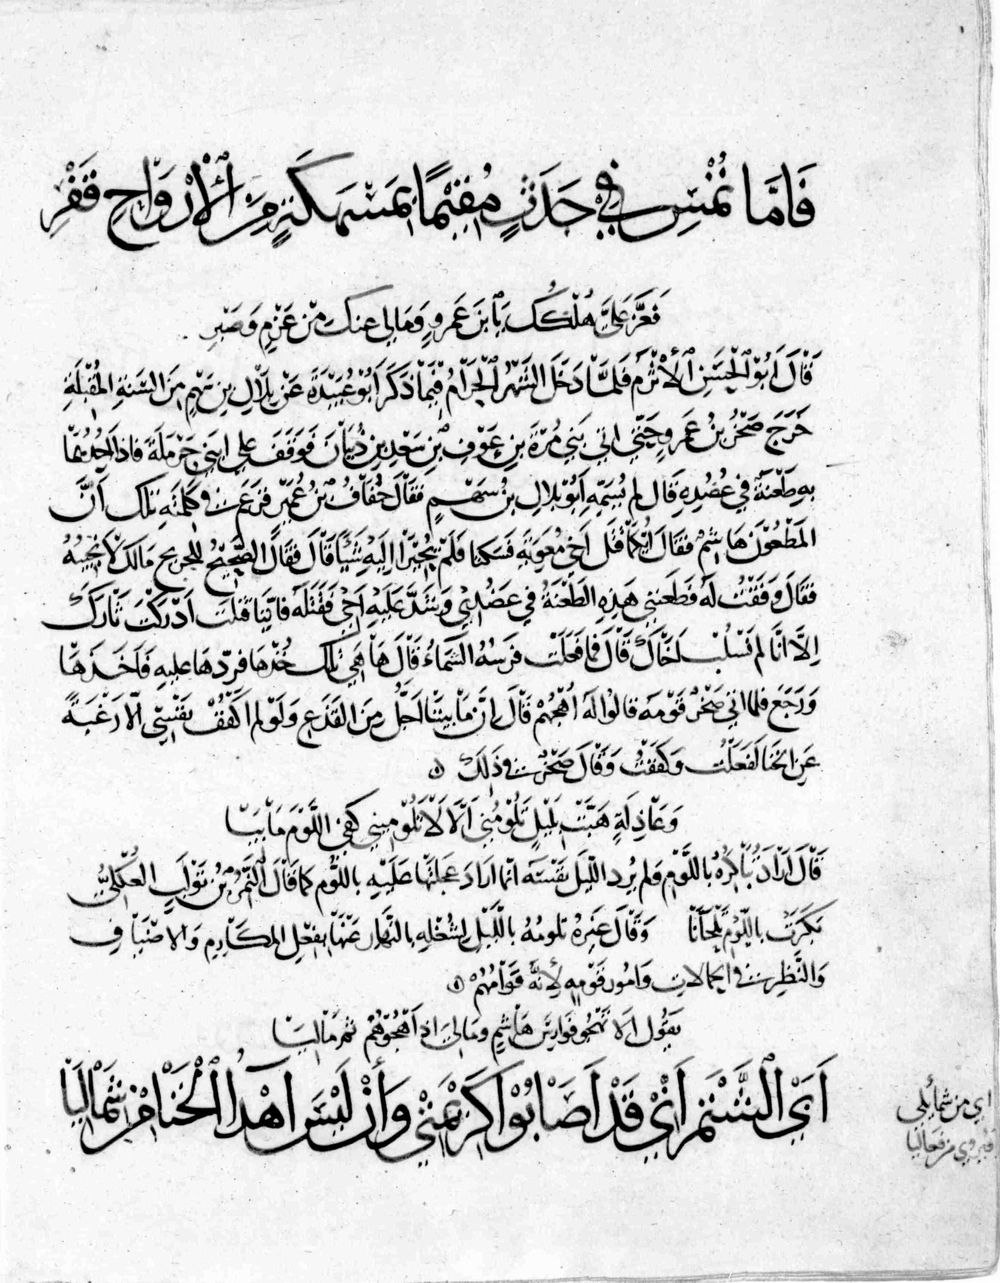 فَامَّا تُمْسِ فِي جَدَثٍ مُقِيمًا بِمَسْهَكَةٍ مِنَ ٱلْأَرْوَاحِ قَفْرِ
فَعَزَّ عَلَيَّ هُلْكُكَ يَا بْنَ عَمْرٍو وَمَالِي عَنكَ مِنْ عَزْمٍ وَصَبْرِ
قَالَ أَبُو الْحَسَنِ ٱلْأَثْرَمُ فَلَمَّا دَخَلَ الشَّهْرُ الْحَرَامُ فِيمَا ذَكَرَ أَبُو عُبَيْدَةَ عَنْ بِلَالِ بنِ سَهْمٍ مِنَ السَّنَةِ الْمُقْبِلَةِ
خَرَجَ صَخْرُ بْنُ عَمْرٍو حَتَّى اتى بَنِي مُرَّةَ بنِ عَوْفِ بْنِ سَعْدِ بنِ ذُبْيَانَ فَوَقَفَ على ابنَيْ حَرْمَلَةَ فاذا احَدُهُمَا
بِهِ طَعْنَةٌ فِي عَضُدِهِ قَالَ لم يُسَمِّهِ أَبُو بِلَالِ بنُ سَهْمٍ فَقَالَ خُفَافُ بْنُ عُمَيْرٍ فزَعَمَ في كَلِمَتِهِ تلك أَنَّ
المَطْعُونَ هَاشِمٌ فقَالَ ايُّكُمَا قَتَلَ اخي مُعوِيَةَ فسَكَتَا فَلَمْ يُحِيرَا الَيْهِ شَيْئًا قَالَ فقَالَ الصَّحِيحُ للجريح مَالَكَ لا تُجِيبُهُ
فقَالَ وَقَفْتُ لَهُ فَطَعَنَنِي هَذِهِ الطَّعْنَةَ فِي عَضُدِي وَشَدَّ عَلَيْهِ اخِي فَقَتَلَهُ فَايَّنَا قَتَلتَ ادْرَكْتَ ثَارَكَ
الَّا انَّا لم نَسْلُب اخَاكَ قَالَ فَمَا فَعَلَتْ فَرَسُهُ الشَّمَاءُ قَالَ هَا هِيَ تِلكَ خُذْهَا فردَّهَا عليهِ فَاخَذَهَا
وَرَجَعَ فلما اتى صَخْرٌ قَوْمَهُ قالوا لَهُ اهْجُهُمْ قَالَ إِنَّ مَا بَيْنَنَا اجَلُّ مِنَ القَذَعِ وَلَوْ لم اكْفُفْ نَفْسِي الَّا رَغْبَةً
عَنِ الخَنَا لَفَعَلْتُ وَكَفَفْتُ وَقَالَ صَخْرٌ في ذَلكَ
وَعَاذِلَةٍ هَبَّتْ بِلَيْلٍ تَلُومُنِي أَلَا لَا تَلُومِينِي كَفَى اللَّوْمَ مَا بِيَا
قَالَ ارَادَ تُبَاكِرُهُ بِاللَّوْمِ وَلم يُرِدِ اللَّيْلَ نَفْسَهُ انَّما ارَادَ عَجَلَتَهَا عَلَيْهِ باللَّوْمِ كما قَالَ النَّمِرُ بْنُ تَوْلَبٍ العُكْلِيُّ
بَكَرَتْ باللَّوْمِ تَلْحَانَا وَقَالَ غَيْرُهُ تَلُومُهُ بِاللَّيْلِ لِشُغْلِهِ بالنَّهَارِ عَنْهَا بِفِعْلِ المَكَارِمِ وَالاضْيَافِ
وَالنَّظَرِ في الحِمَالَاتِ وَامُورِ قَوْمِهِ لِأَنَّهُ قِوَامُهُمْ
يَقُولُ الا تَهْجُو فَوَارِسَ هَاشِمٍ وَمَا لِيَ اذ اهْجُوهُمُ ثم مَا لِيَا
أَبَى ٱلشَّتْمَ أَنِّي قَدْ أَصَابُوا كَرِيمَتِي وَأَنْ لَيْسَ اهْدَاءُ الْخَنَا مِنْ شِمَالِيَا
اي من شمائلي
ويروى من فعاليا